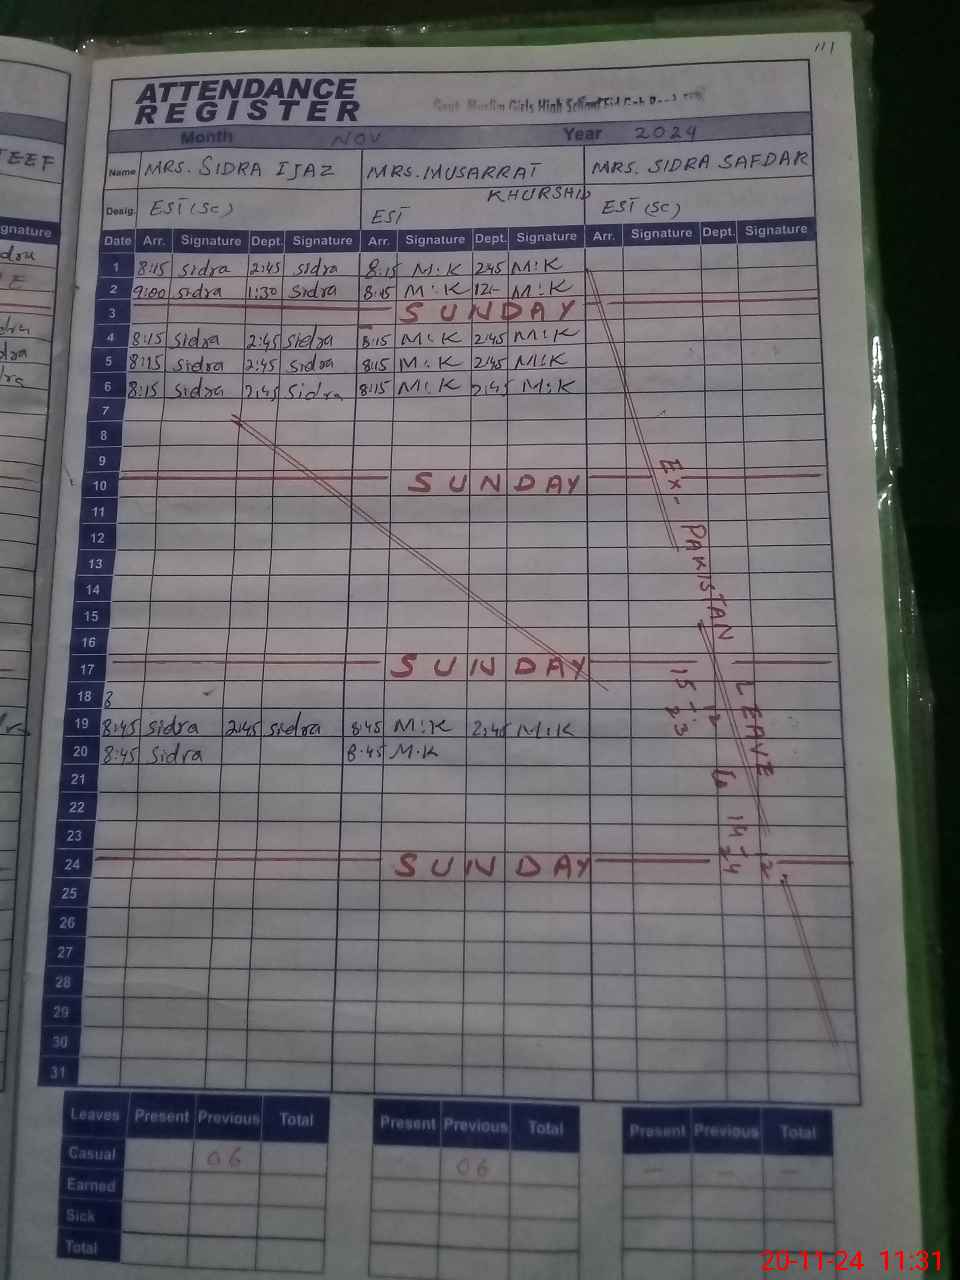 111
ATTENDANCE
REGISTER
Govt. Muslim Girls High School
Month NOV Year 2024
TEEF
Name MRS. SIDRA IJAZ MRS. MUSARRAT KHURSHID MRS. SIDRA SAFDAR
Desig. EST (SC) EST EST (SC)
gnature
Date Arr. Signature Dept. Signature Arr. Signature Dept. Signature Arr. Signature Dept. Signature
1 8:15 sidra 2:45 sidra 8:15 M:K 2:45 M:K
2 9:00 sidra 1:30 sidra 8:15 M:K 12:- M:K
3 SUNDAY
4 8:15 sidra 2:45 sidra 8:15 M:K 2:45 M:K
5 8:15 sidra 2:45 sidra 8:15 M:K 2:45 M:K
6 8:15 sidra 2:45 sidra 8:15 M:K 2:45 M:K
7
8
9
10 SUNDAY
11
12
13
14
15
16
17 SUNDAY
18 8
19 8:45 sidra 2:45 sidra 8:45 M:K 2:45 M:K
20 8:45 sidra 8:45 M.K
21
22
23
24 SUNDAY
25
26
27
28
29
30
31
EX- PAKISTAN LEAVE
15-12-23 to 14-12-24
Leaves Present Previous Total Present Previous Total Present Previous Total
Casual 06 06 - - -
Earned
Sick
Total
20-11-24 11:31